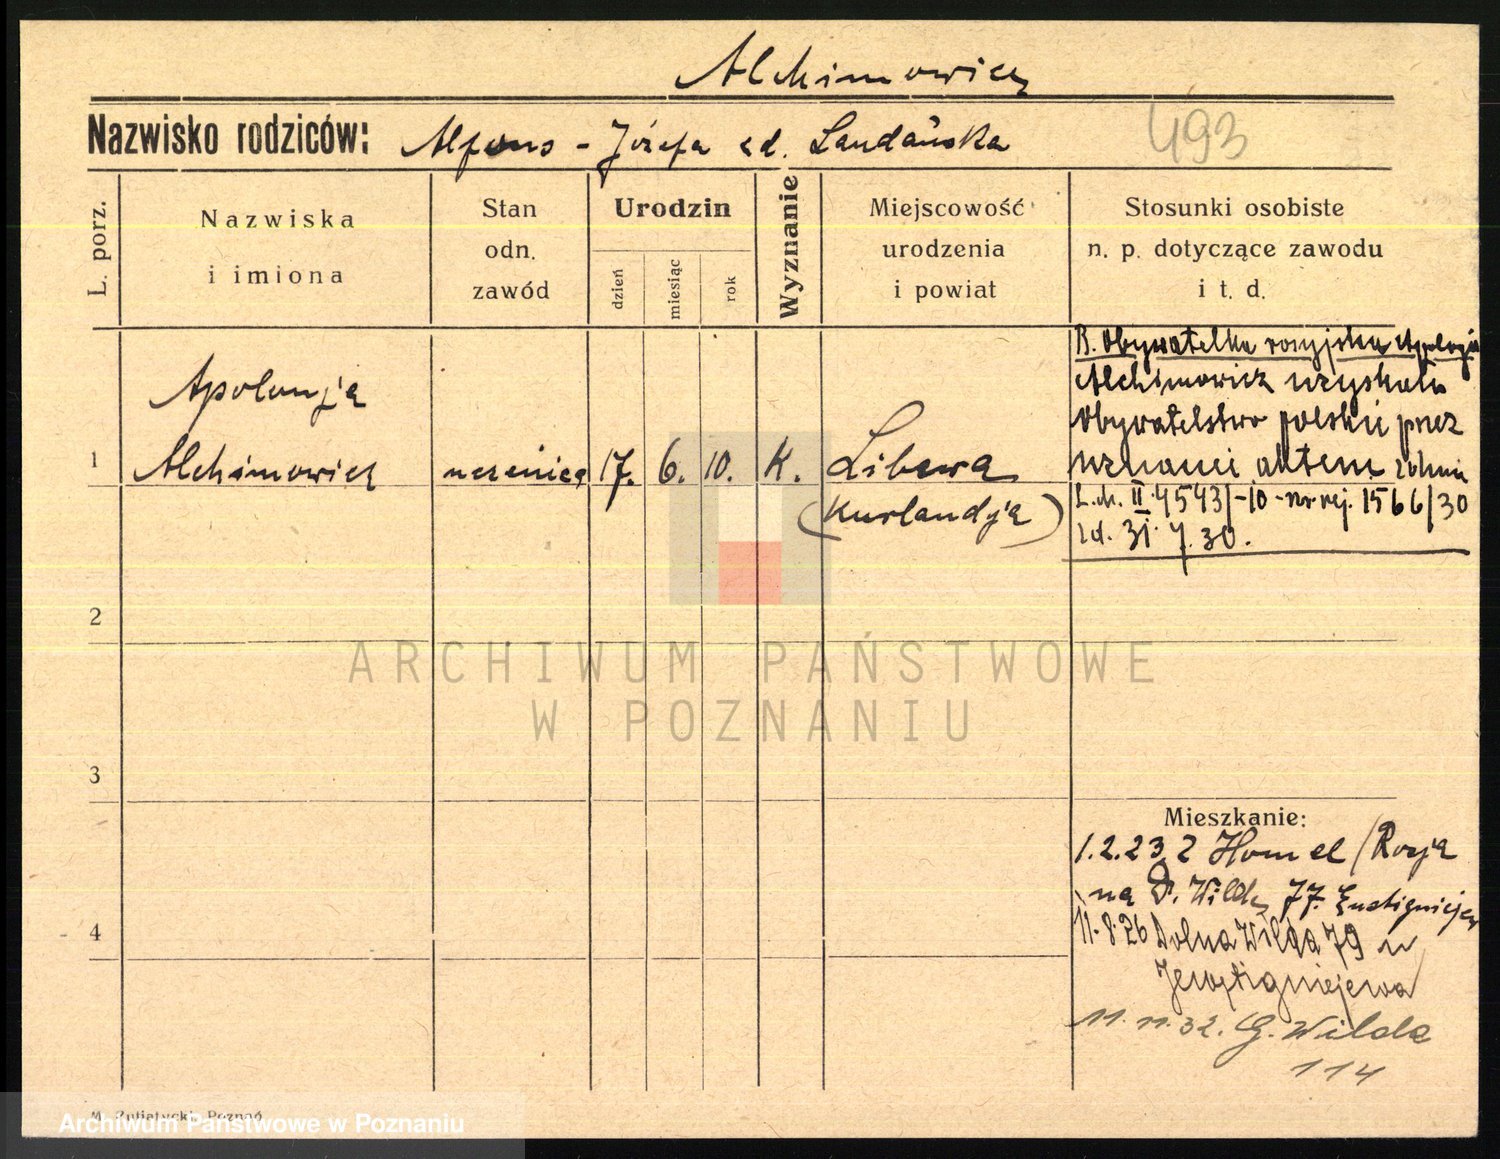 Alchimowicz
Nazwisko rodziców: Alfons - Józefa zd. Landańska
493
L. porz.
Nazwiska
i imiona
Stan
odn.
zawód
Urodzin
dzień
miesiąc
rok
Wyznanie
Miejscowość
urodzenia
i powiat
Stosunki osobiste
n. p. dotyczące zawodu
i t. d.
B. Obywatelka rosyjska Apolonja
Alchimowicz uzyskała
obywatelstwo polskie przez
uznanie aktem
L.dz. II 4543/-10 - nr rej. 1566/30
zd. 31.7.30.
1
Apolonja
Alchimowicz
uczenica
17. 6. 10. K.
Libawa
(Kurlandja)
2
3
4
Mieszkanie:
1.2.23 z Homel / Rosja
na D. Wildę 77.
11.8.26 Dolna Wilda 79 u
Jewstigniejewa
11.11.32. G. Wilda
114
ARCHIWUM PAŃSTWOWE
W POZNANIU
M. Putiatycki, Poznań
Archiwum Państwowe w Poznaniu